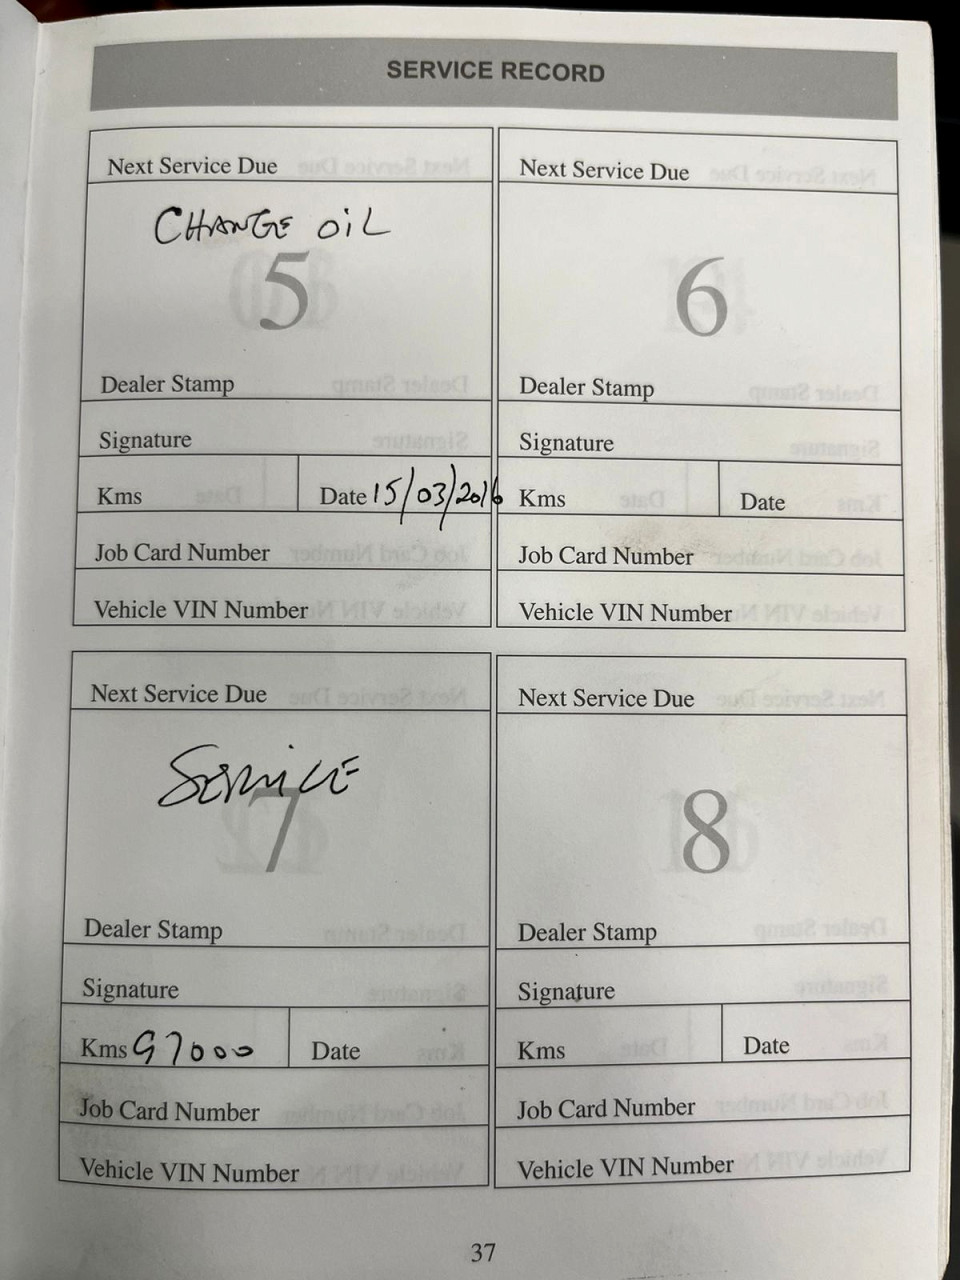 SERVICE RECORD
Next Service Due
CHANGE OiL
5
Dealer Stamp
Signature
Kms Date 15/03/2016
Job Card Number
Vehicle VIN Number
Next Service Due
6
Dealer Stamp
Signature
Kms Date
Job Card Number
Vehicle VIN Number
Next Service Due
SERVICE
7
Dealer Stamp
Signature
Kms 97000 Date
Job Card Number
Vehicle VIN Number
Next Service Due
8
Dealer Stamp
Signature
Kms Date
Job Card Number
Vehicle VIN Number
37